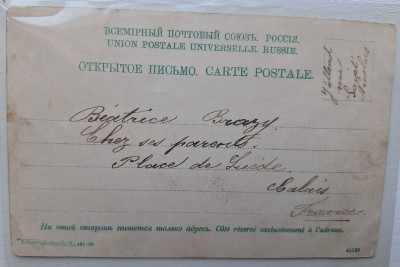 ВСЕМІРНЫЙ ПОЧТОВЫЙ СОЮЗЪ. РОССІЯ.
UNION POSTALE UNIVERSELLE. RUSSIE.
ОТКРЫТОЕ ПИСЬМО. CARTE POSTALE.
Béatrice Brazy.
Chez ses parents.
Place de Suède.
Calais
France.
На этой сторонѣ пишется только адресъ. Côté réservé exclusivement à l'adresse.